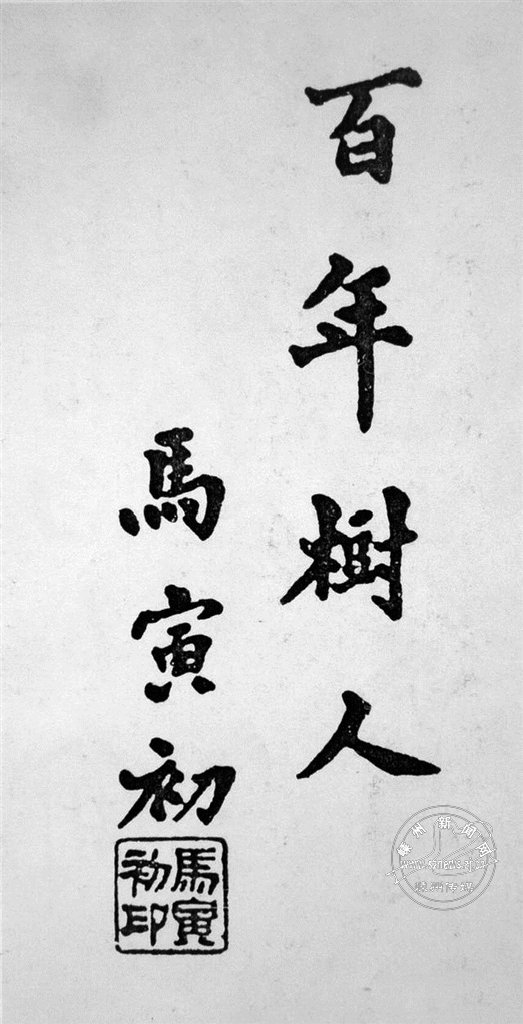 百年樹人
馬寅初
馬寅初印